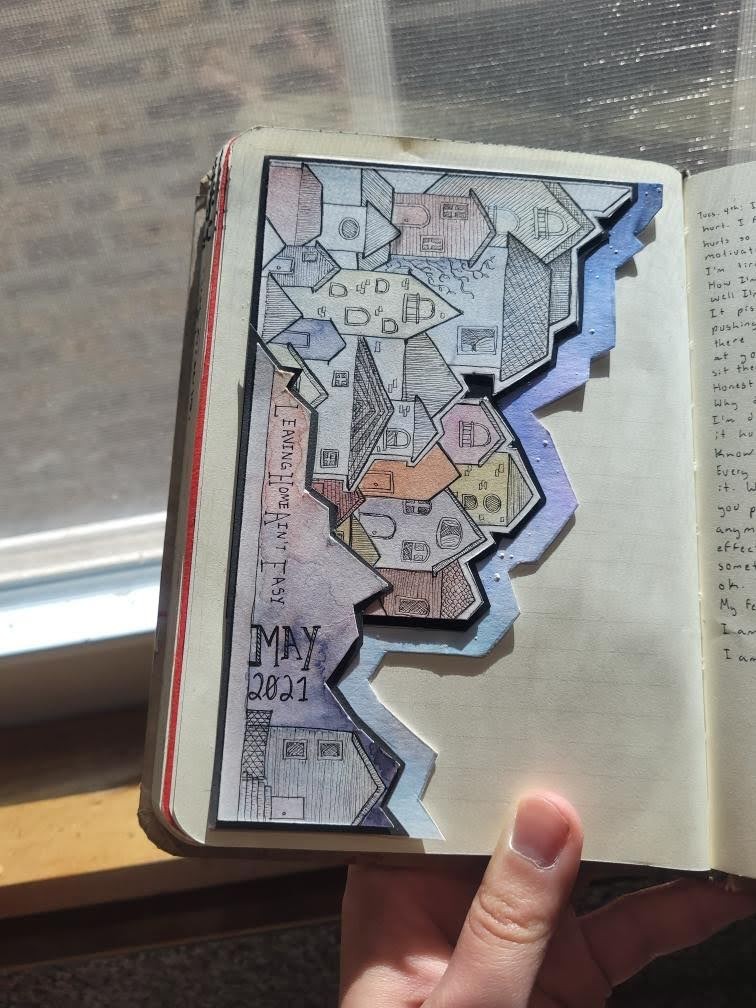 LEAVING HOME AIN'T EASY
MAY
2021
Tues. 4th: I
hurt. I f
hurts so
motivati
I'm tir
How I'm
well I'm
It pis
pushing
there
at yo
sit the
Honest
Why d
I'm d
it hu
Know
Every
it. W
you p
anym
effec
somet
ok.
My Fa
I am
I am